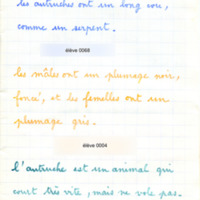 les autruches ont un long cou,
comme un serpent.
élève 0068
les mâles ont un plumage noir,
foncé, et les femelles ont un
plumage gris.
élève 0004
l'autruche est un animal qui
court très vite, mais ne vole pas.